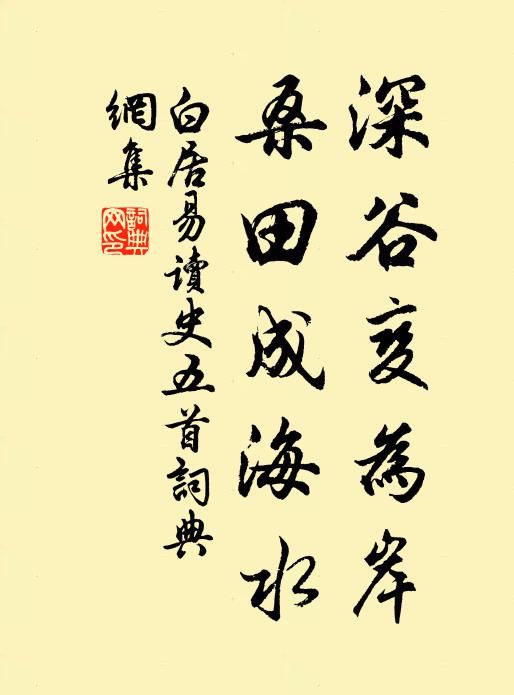 深谷变為岸
桑田成海水
白居易讀史五首詞典
網集
詞典网印